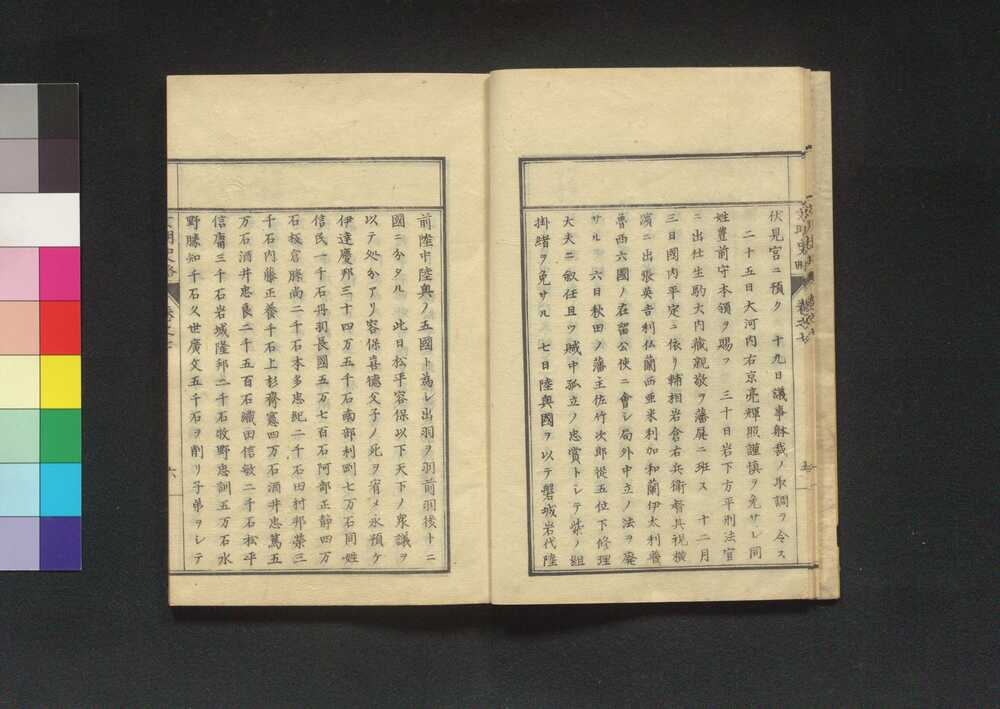 伏見宮ニ預ク 十九日議事躰裁ノ取調ヲ令ス
二十五日大河内右京亮輝照謹慎ヲ免サレ同
姓豊前守本領ヲ賜フ 三十日岩下方平刑法官
ニ出仕生駒大内蔵親敬ヲ藩屏ニ班ス 十二月
三日國内平定ニ依リ輔相岩倉右兵衛督具視横
濱ニ出張英吉利仏蘭西亜米利加和蘭伊太利普
魯西六國ノ在留公使ニ會シ局外中立ノ法ヲ廃
サル 六日秋田ノ藩主佐竹次郎從五位下修理
大夫ニ叙任且ツ賊中孤立ノ忠賞トシテ紫ノ組
掛緒ヲ免サル 七日陸奥國ヲ以テ磐城岩代陸
前陸中陸奥ノ五國ト為レ出羽ヲ羽前羽後トニ
國ニ分タル 此日松平容保以下天下ノ衆議ヲ
以テ処分アリ容保喜徳父子ノ死ヲ宥メ永預ケ
伊達慶邦三十四万五千石南部利剛七万石同姓
信民一千石丹羽長國五万七百石阿部正静四万
石板倉勝尚二千石本多忠紀二千石田村邦榮三
千石内藤正養千石上杉齊憲四万石酒井忠篤五
万石酒井忠良二千五百石織田信敏二千石松平
信庸三千石岩城隆邦二千石牧野忠訓五万石水
野勝知千石久世廣文五千石ヲ削リ子弟ヲシテ
六